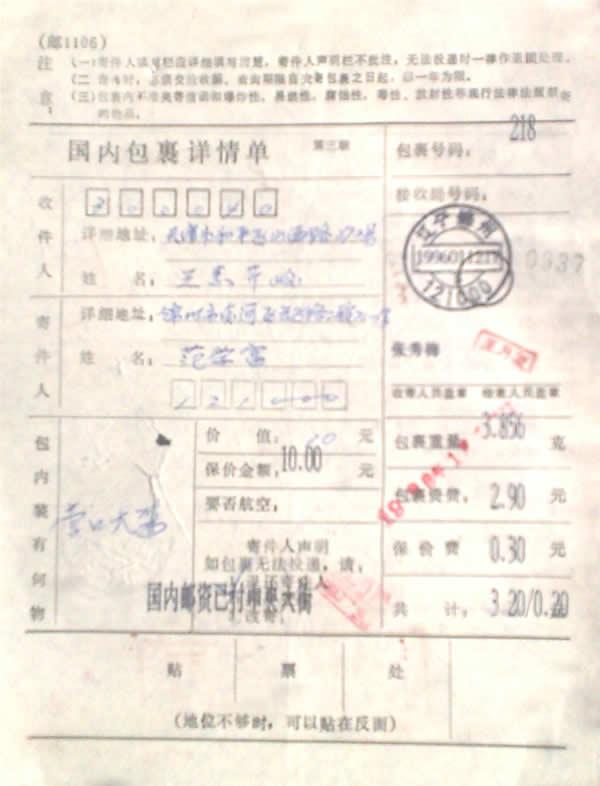 (邮1106)
注意:
(一)寄件人填写栏应详细填写清楚,寄件人声明栏不批注,无法投递时一律作退回处理。
(二 寄 时,必须交给收据,查询期限自交寄包裹之日起,以一年为限。
(三)包裹内不准夹寄信函和爆炸性、易燃性、腐蚀性、毒性、放射性等
的物品。
国内包裹详情单 第三联
包裹号码: 218
接收局号码:
收件人
300040
详细地址:天津市和平区山西路
姓 名:王
辽宁锦州
1996011217
121000
0937
寄件人
详细地址:锦州市
姓 名:范荣富
121000
张秀梅
收寄人员盖章 检查人员盖章
包内装有何物
营口大
价 值: 10 元
保价金额: 10.00 元
要否航空:
寄件人声明
如包裹无法投递,请:
退还寄件人
国内邮资已付中央大街
改寄:
包裹重量 3.856 克
包裹资费: 2.90 元
保价费 0.30 元
共 计: 3.20/0.20
贴 票 处
(地位不够时,可以贴在反面)